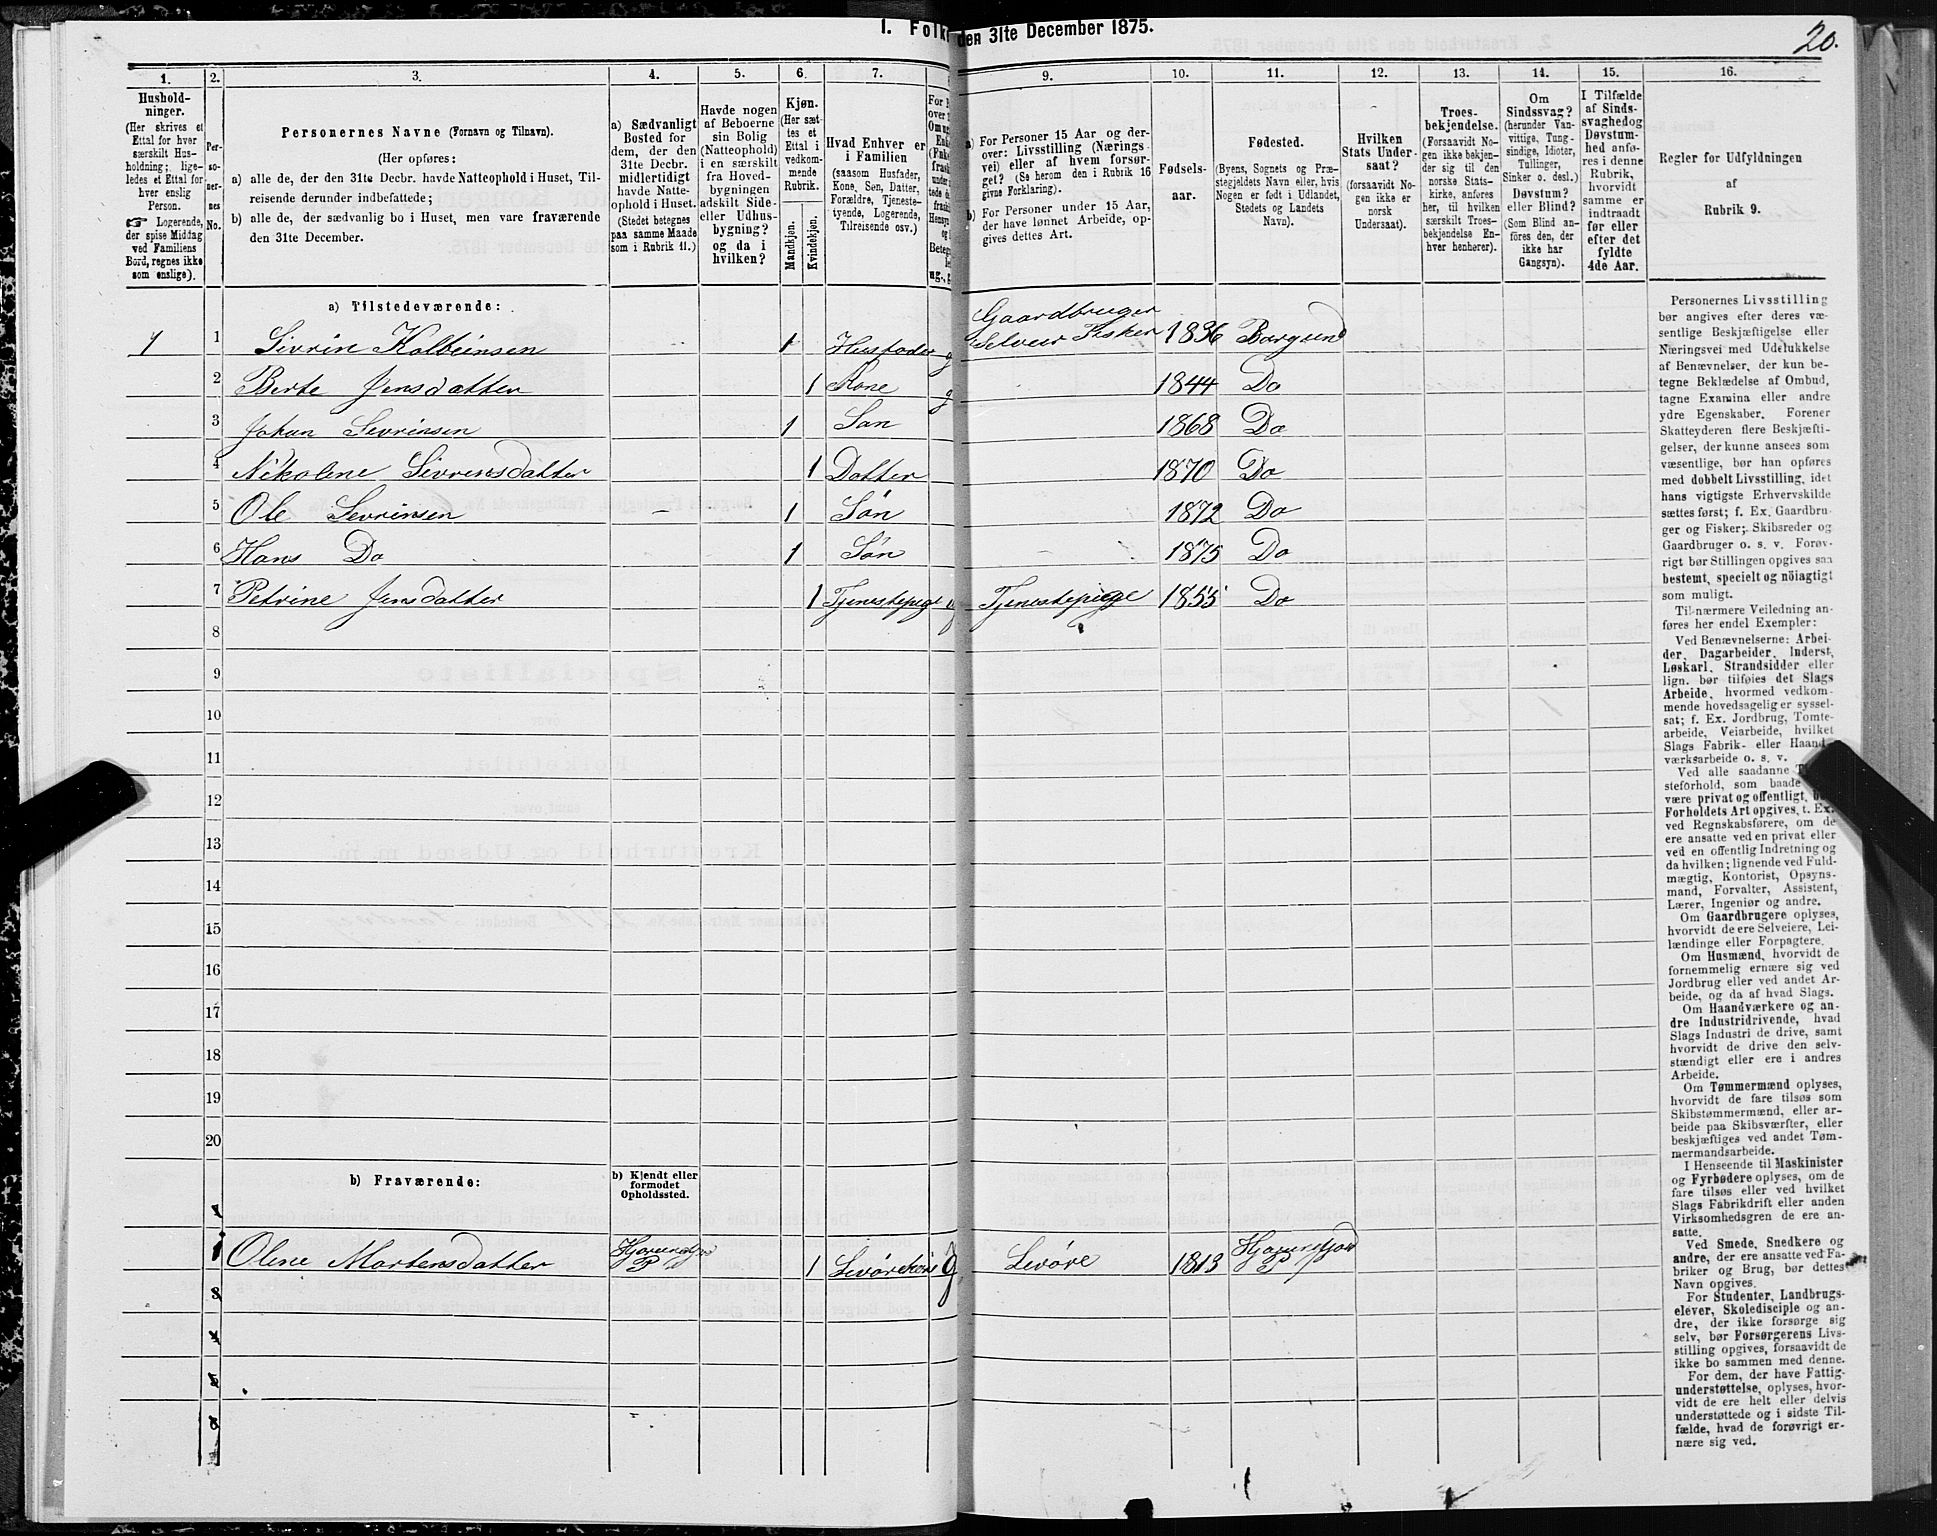 1. Folk den 31te December 1875.
20.
1.
2.
3.
4.
5.
6.
7.
9.
10.
11.
12.
13.
14.
15.
16.
Hushold-
ninger.
(Her skrives et
Ettal for hver
særskilt Hus-
holdning; lige-
ledes et Ettal for
hver enslig
Person.
☞ Logerende,
der spise Middag
ved Familiens
Bord, regnes ikke
som enslige).
Per-
so-
ner-
nes
No.
Personernes Navne (Fornavn og Tilnavn).
(Her opføres:
a) alle de, der den 31te Decbr. havde Natteophold i Huset, Til-
reisende derunder indbefattede;
b) alle de, der sædvanlig bo i Huset, men vare fraværende
den 31te December.
a) Sædvanligt
Bosted for
dem, der den
31te Decbr.
midlertidigt
havde Natte-
ophold i Huset.
(Stedet betegnes
paa samme Maade
som i Rubrik 11.)
Havde nogen
af Beboerne
sin Bolig
(Natteophold)
i en særskilt
fra Hoved-
bygningen
adskilt Side-
eller Udhus-
bygning?
og da i
hvilken?
Kjøn.
(Her sæt-
tes et
Ettal i
vedkom-
mende
Rubrik.
Mandkjøn.
Kvindekjøn.
Hvad Enhver er
i Familien
(saasom Husfader,
Kone, Søn, Datter,
Forældre, Tjeneste-
tyende, Logerende,
Tilreisende osv.)
a) For Personer 15 Aar og der-
over: Livsstilling (Nærings-
vei) eller af hvem forsør-
get? (Se herom den i Rubrik 16
givne Forklaring).
b) For Personer under 15 Aar,
der have lønnet Arbeide, op-
gives dettes Art.
Fødsels-
aar.
Fødested.
(Byens, Sognets og Præ-
stegjeldets Navn eller, hvis
Nogen er født i Udlandet,
Stedets og Landets
Navn).
Hvilken
Stats Under-
saat?
(forsaavidt No-
gen ikke er
norsk
Undersaat).
Troes-
bekjendelse.
(Forsaavidt No-
gen ikke bekjen-
der sig til den
norske Stats-
kirke, anføres
her, til hvilken
særskilt Troes-
bekjendelse En-
hver henhører).
Om
Sindssvag?
(herunder Van-
vittige, Tung-
sindige, Idioter,
Tullinger,
Sinker o. desl.)
Døvstum?
eller Blind?
(Som Blind an-
føres den, der
ikke har
Gangsyn).
I Tilfælde
af Sinds-
svaghedog
Døvstum-
hed anfø-
res i denne
Rubrik,
hvorvidt
samme er
indtraadt
før eller
efter det
fyldte
4de Aar.
Regler for Udfyldningen
af
Rubrik 9.
a) Tilstedeværende:
1 1 Sivrin Kolbeinsen 1 Husfader g Gaardbruger Selveier Fisker 1836 Borgund
2 Berte Jensdatter 1 Kone g 1844 Do
3 Johan Sevrinsen 1 Søn 1868 Do
4 Nikoline Sivrinsdatter 1 Datter 1870 Do
5 Ole Sevrinsen 1 Søn 1872 Do
6 Hans Do 1 Søn 1875 Do
7 Petrine Jensdatter 1 Tjenestepige ug Tjenestepige 1855 Do
8
9
10
11
12
13
14
15
16
17
18
19
20
b) Fraværende:
b) Kjendt eller
formodet
Opholdssted.
1 Olene Mortensdatter P 1 g Levøre 1813 Hjørundfjord P
Personernes Livsstilling
bør angives efter deres væ-
sentlige Beskjæftigelse eller
Næringsvei med Udelukkelse
af Benævnelser, der kun be-
tegne Beklædelse af Ombud,
tagne Examina eller andre
ydre Egenskaber. Forener
Skatteyderen flere Beskjæfti-
gelser, der kunne ansees som
væsentlige, bør han opføres
med dobbelt Livsstilling, idet
hans vigtigste Erhvervskilde
sættes først; f. Ex. Gaardbru-
ger og Fisker; Skibsreder og
Gaardbruger o. s. v. Forøv-
rigt bør Stillingen opgives saa
bestemt, specielt og nöiagtigt
som muligt.
Til nærmere Veiledning an-
føres her endel Exempler:
Ved Benævnelserne: Arbei-
der, Dagarbeider, Inderst,
Løskarl, Strandsidder eller
lign. bør tilføies det Slags
Arbeide, hvormed vedkom-
mende hovedsagelig er syssel-
sat; f. Ex. Jordbrug, Tomte-
arbeide, Veiarbeide, hvilket
Slags Fabrik- eller Haand-
værksarbeide o. s. v.
Ved alle saadanne
steforhold, som baade
være privat og offentligt,
Forholdets Art opgives, t. Ex.
ved Regnskabsførere, om de
ere ansatte ved en privat eller
ved en offentlig Indretning og
da hvilken; lignende ved Fuld-
mægtig, Kontorist, Opsyns-
mand, Forvalter, Assistent,
Lærer, Ingeniør og andre.
Om Gaardbrugere oplyses,
hvorvidt de ere Selveiere, Lei-
lændinge eller Forpagtere.
Om Husmænd, hvorvidt de
fornemmelig ernære sig ved
Jordbrug eller ved andet Ar-
beide, og da af hvad Slags.
Om Haandværkere og an-
dre Industridrivende, hvad
Slags Industri de drive, samt
hvorvidt de drive den selv-
stændigt eller ere i andres
Arbeide.
Om Tømmermænd oplyses,
hvorvidt de fare tilsøs som
Skibstømmermænd, eller ar-
beide paa Skibsværfter, eller
beskjæftiges ved andet Tøm-
mermandsarbeide.
I Henseende til Maskinister
og Fyrbødere oplyses, om de
fare tilsøs eller ved hvilket
Slags Fabrikdrift eller anden
Virksomhedsgren de ere an-
satte.
Ved Smede, Snedkere og
andre, der ere ansatte ved Fa-
briker og Brug, bør dettes
Navn opgives.
For Studenter, Landbrugs-
elever, Skoledisciple og an-
dre, der ikke forsørge sig
selv, bør Forsørgerens Livs-
stilling opgives, forsaavidt de
ikke bo sammen med denne.
For dem, der have Fattig-
understøttelse, oplyses, hvor-
vidt de ere helt eller delvis
understøttede og i sidste Til-
fælde, hvad de forøvrigt er-
nære sig ved.